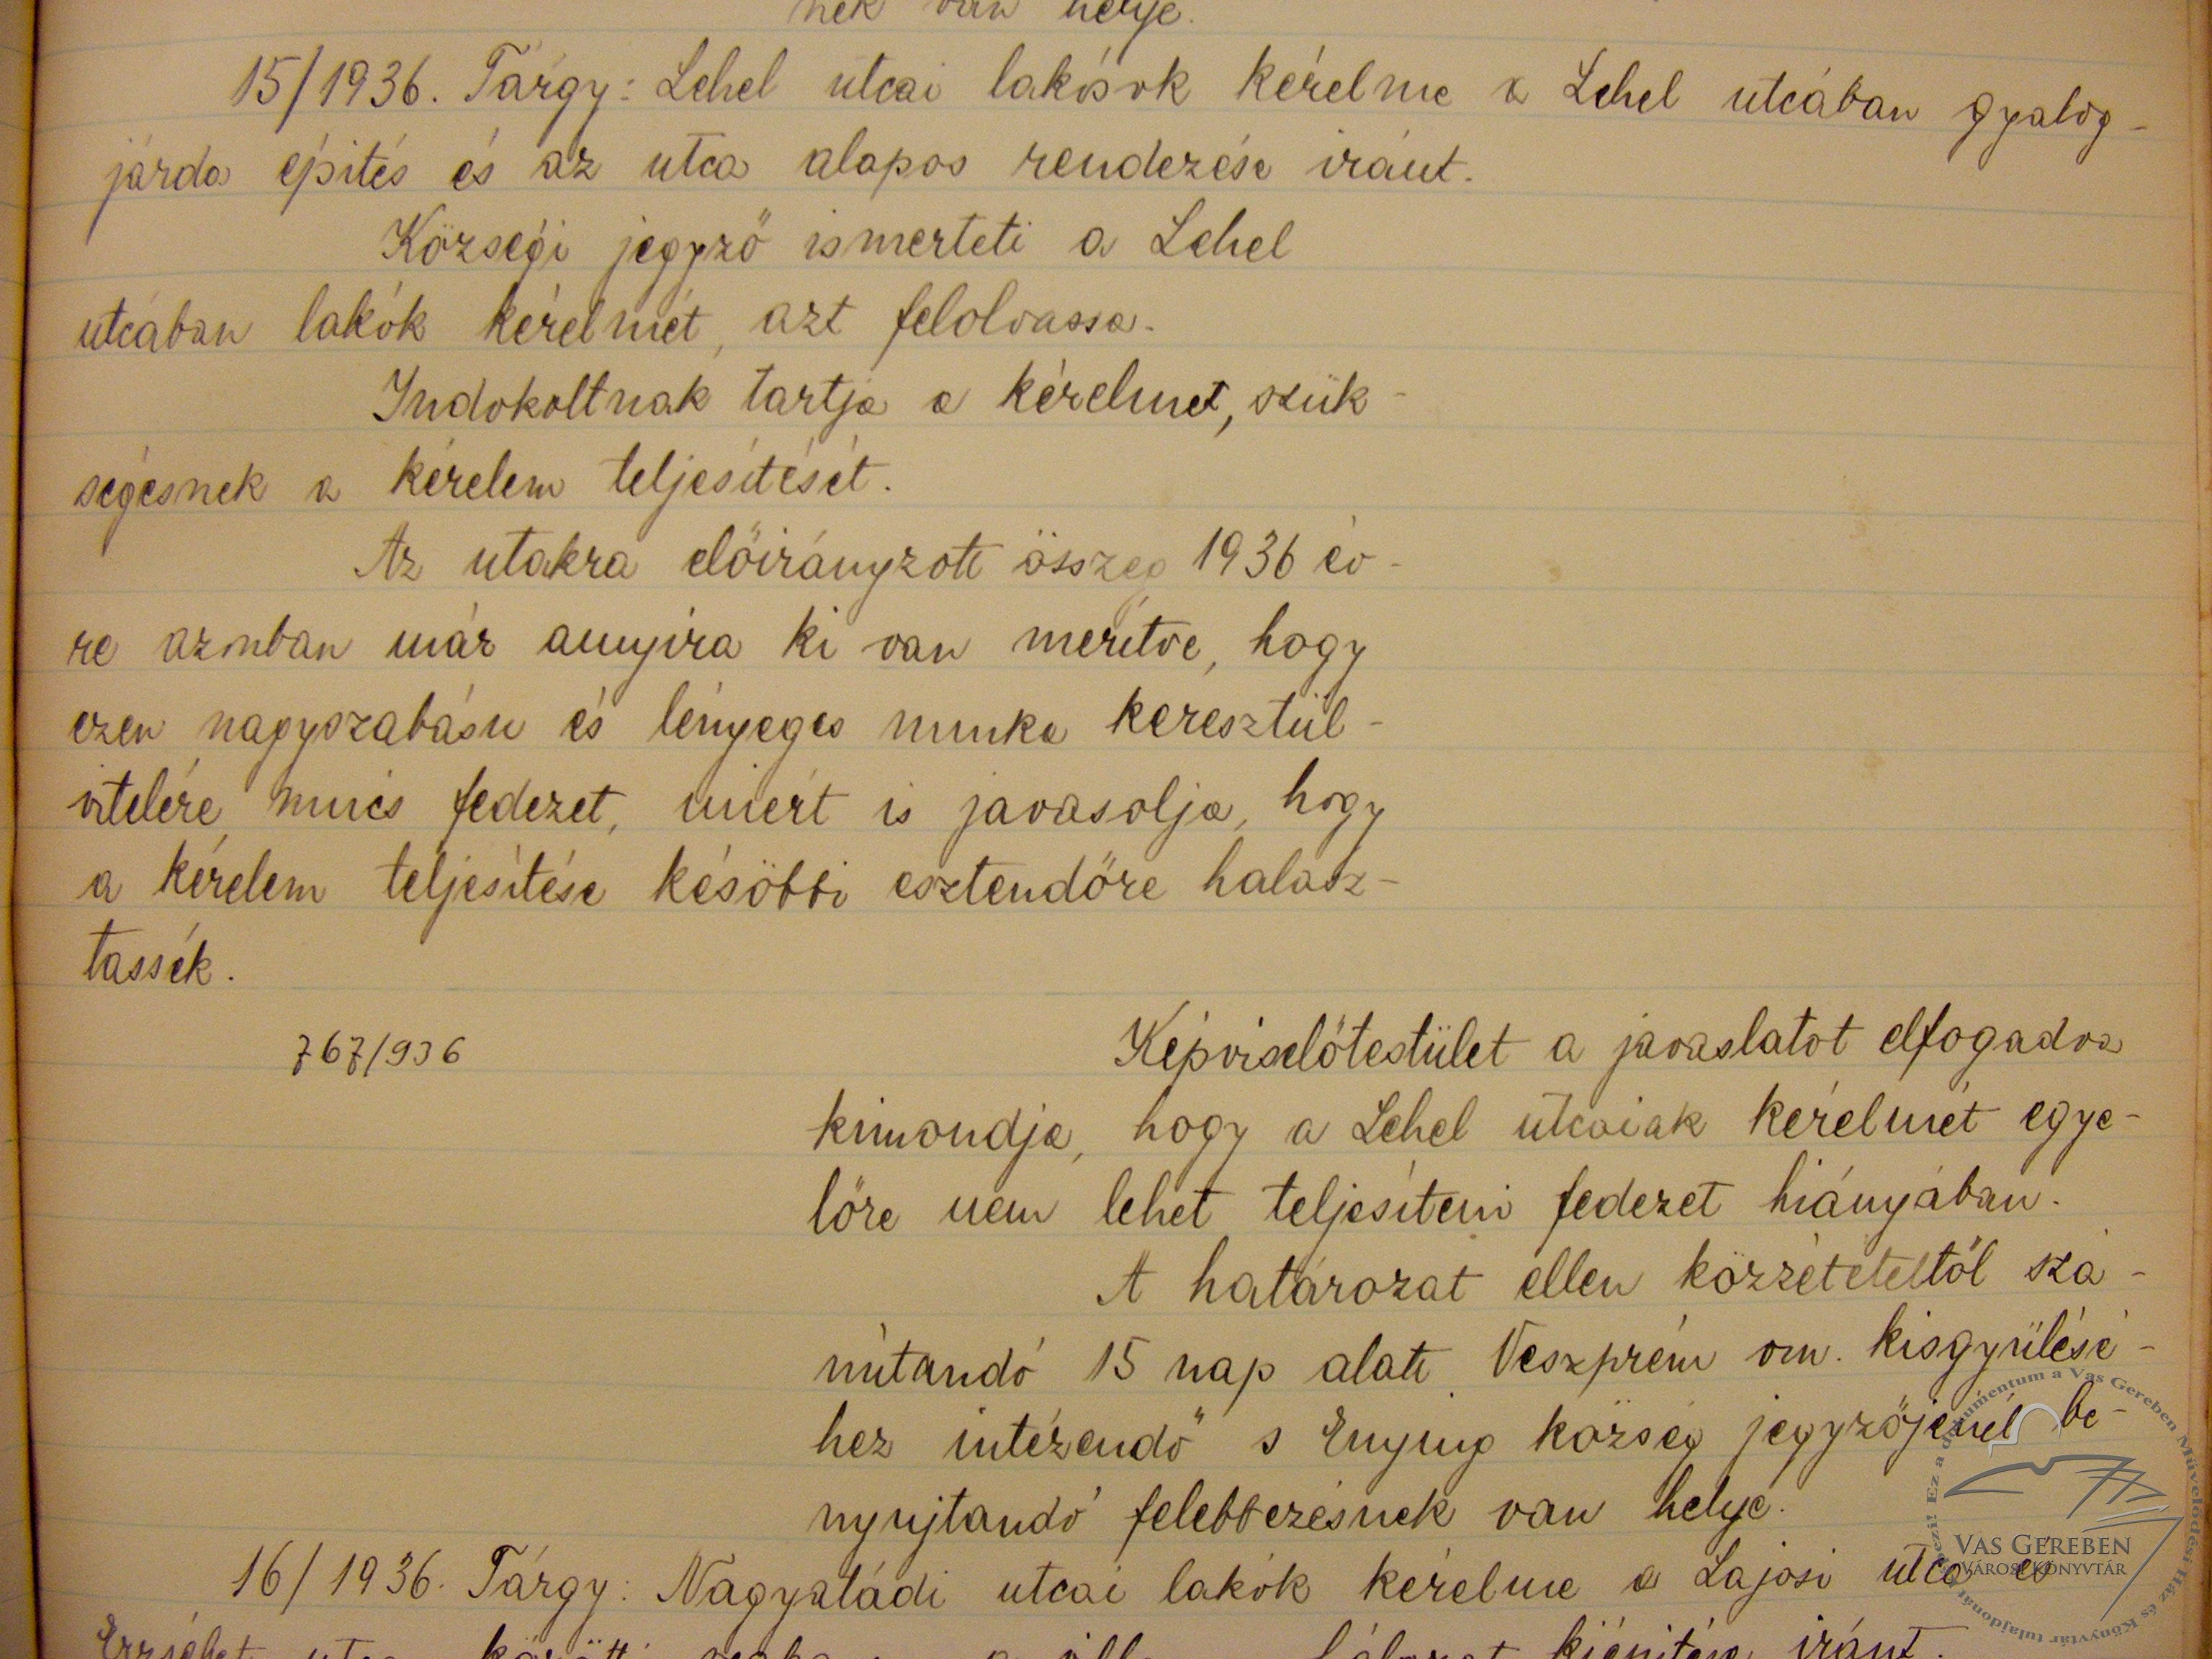 nek van helye.
15/1936. Tárgy: Lehel utcai lakósok kérelme a Lehel utcában gyalog-
járda épités és az utca alapos rendezése iránt.
Községi jegyző ismerteti a Lehel
utcában lakók kérelmét, azt felolvassa.
Indokoltnak tartja a kérelmet, szük-
ségesnek a kérelem teljesítését.
Az utakra előirányzott összeg 1936 év-
re azonban már annyira ki van merítve, hogy
ezen nagyszabásu és lényeges munka keresztül-
vitelére nincs fedezet, miért is javasolja, hogy
a kérelem teljesítése későbbi esztendőre halasz-
tassék.
767/936
Képviselőtestület a javaslatot elfogadva
kimondja, hogy a Lehel utcaiak kérelmét egye-
lőre nem lehet teljesíteni fedezet hiányában.
A határozat ellen közzétételtől szá-
mítandó 15 nap alatt Veszprém vm. kisgyűlésé-
hez intézendő s Enying község jegyzőjénél be-
nyujtandó felebbezésnek van helye.
16/1936. Tárgy: Nagyatádi utcai lakók kérelme a Lajosi utca és
Erzsébet utca közötti iránt.
Ez a dokumentum a Vas Gereben Művelődési Ház és Könyvtár tulajdonát képezi!
VAS GEREBEN
VÁROSI KÖNYVTÁR